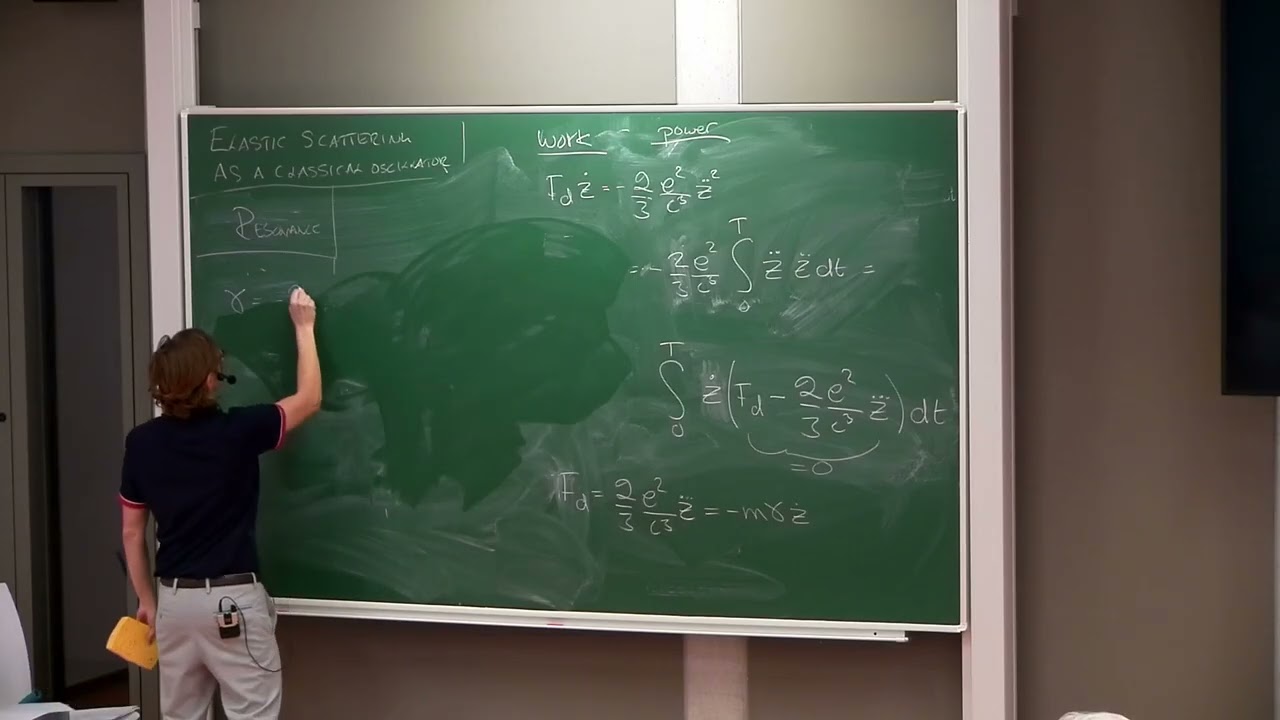 ELASTIC SCATTERING
AS A CLASSICAL OSCILLATOR
RESONANCE
γ =
work - power
F_d ż = - 2/3 e²/c³ z̈²
= - 2/3 e²/c³ ∫₀ᵀ z̈ z̈ dt =
∫₀ᵀ ż (F_d - 2/3 e²/c³ z⃛) dt
= 0
F_d = 2/3 e²/c³ z⃛ = -mγż